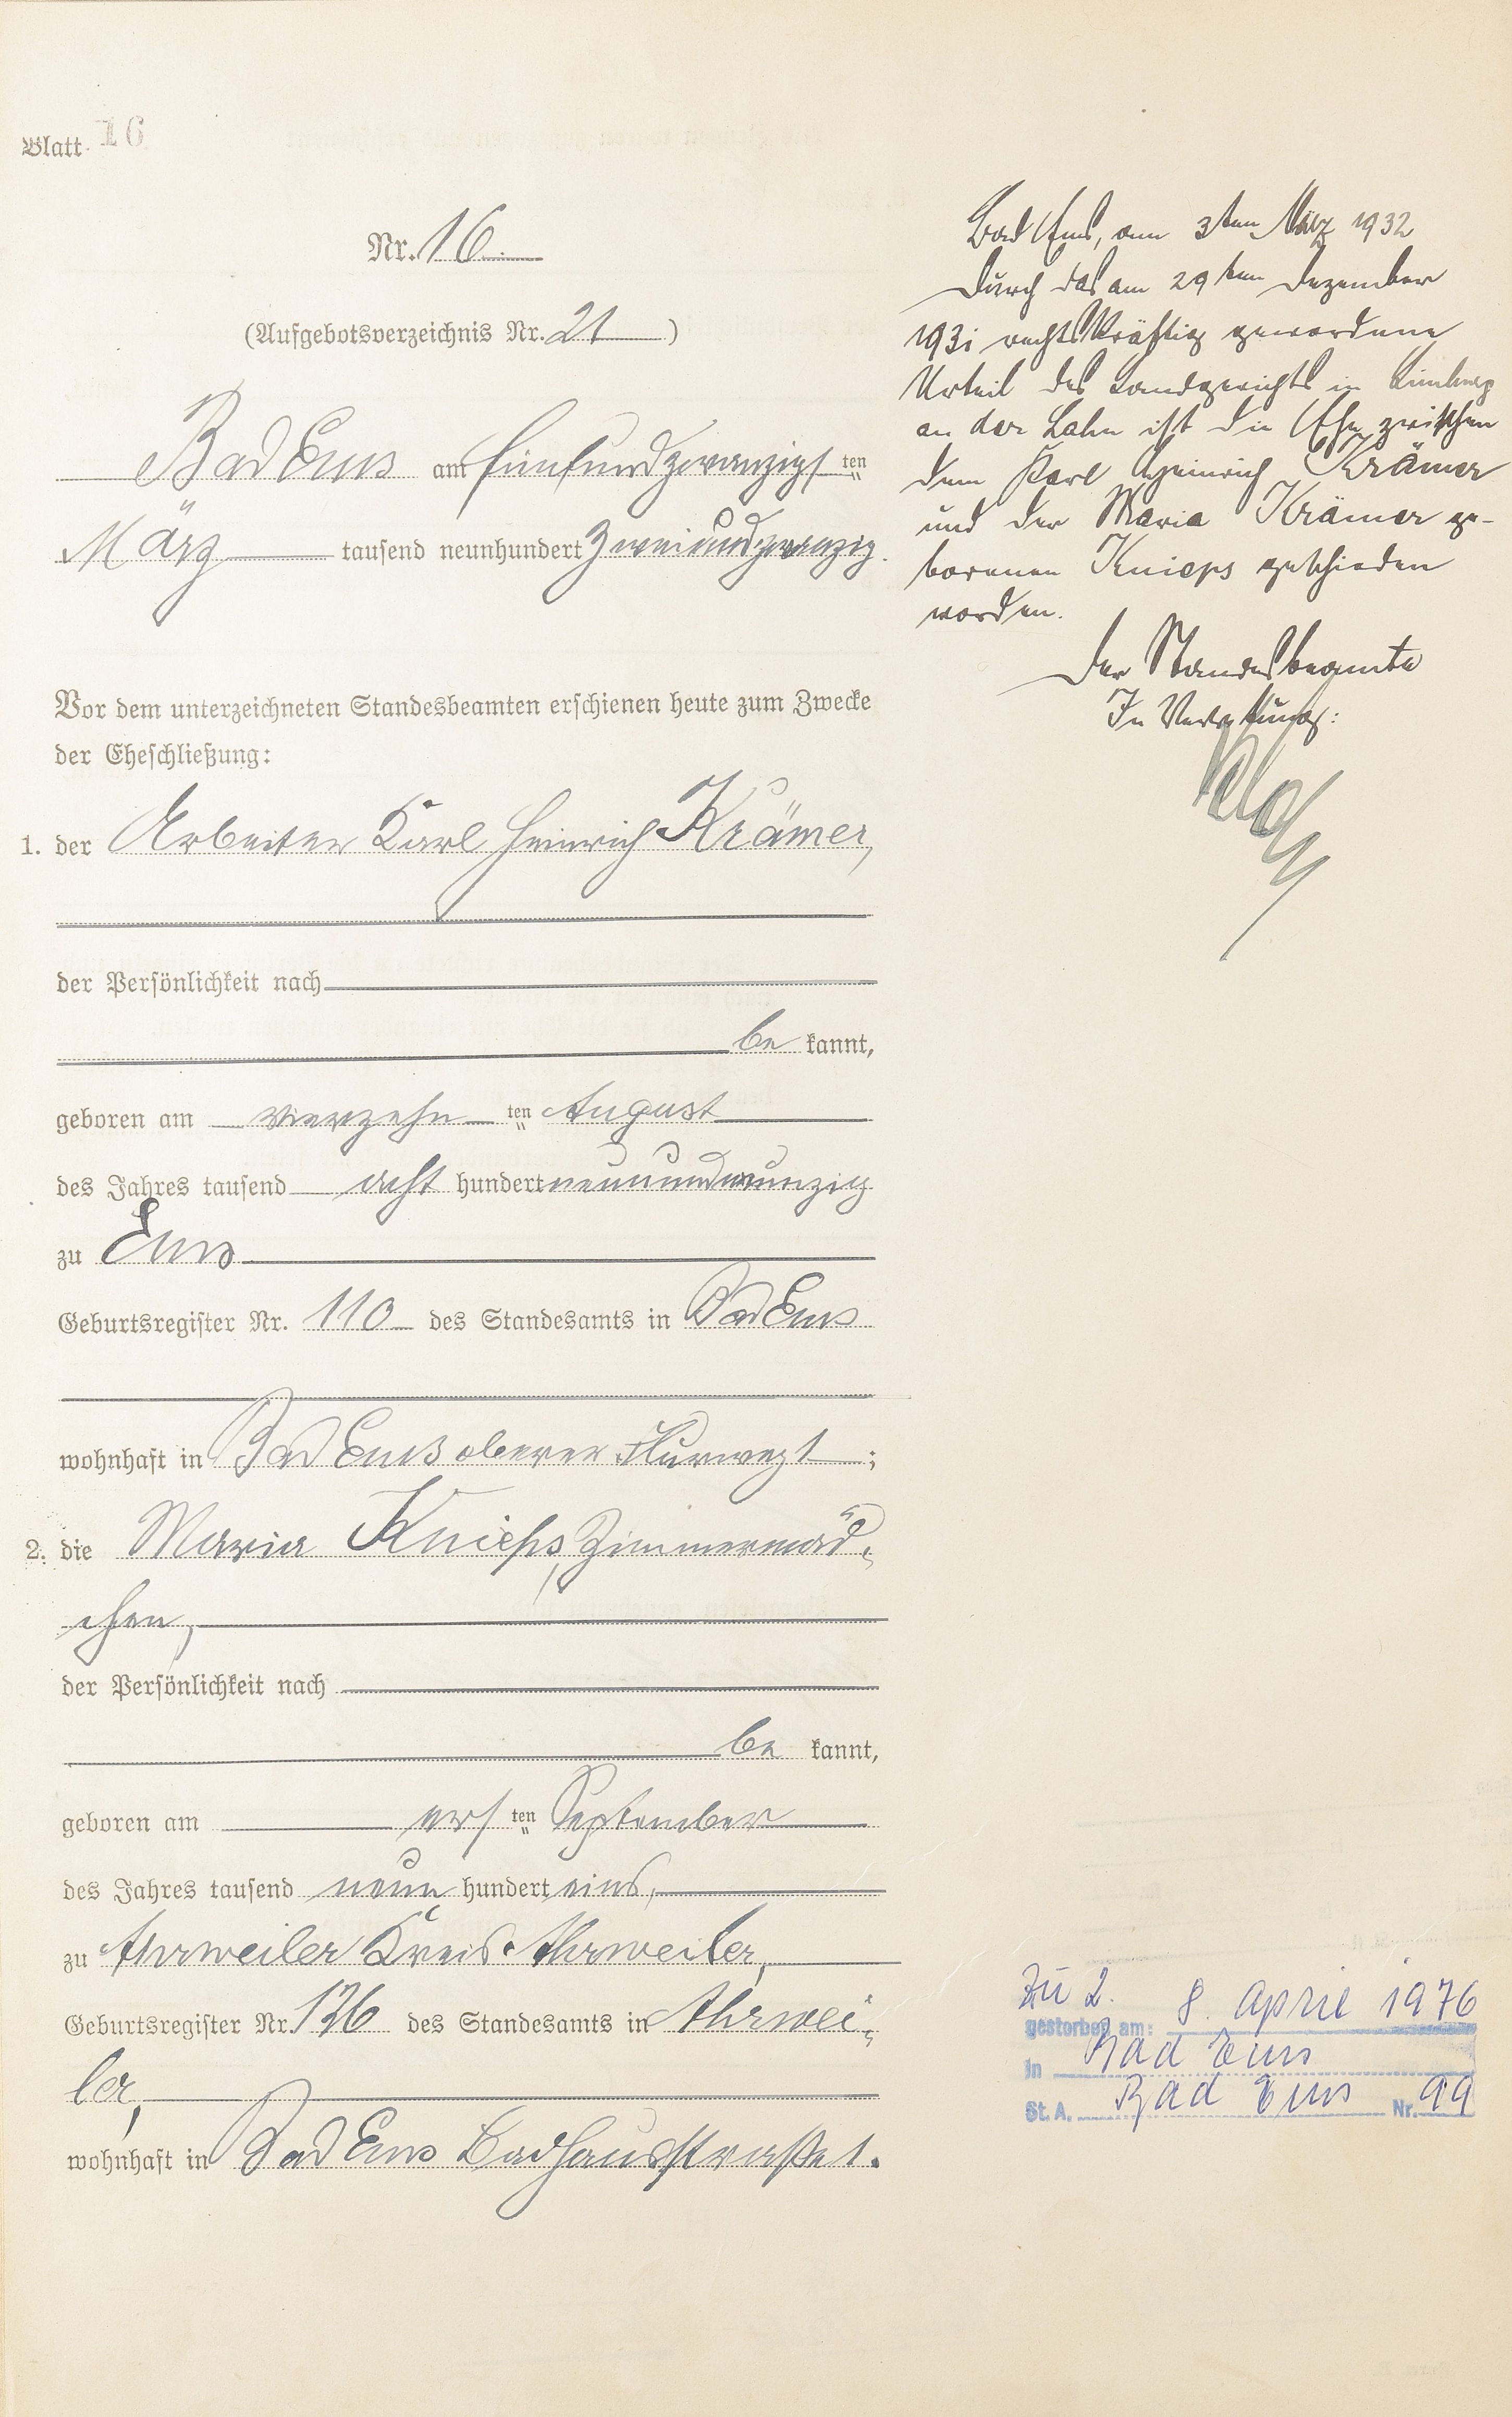 Blatt 16
Nr. 16.
(Aufgebotsverzeichnis Nr. 21)
Bad Ems am fünfundzwanzigsten
März tausend neunhundert zweiundzwanzig.
Vor dem unterzeichneten Standesbeamten erschienen heute zum Zwecke
der Eheschließung:
1. der Arbeiter Karl Heinrich Krämer,
der Persönlichkeit nach
be kannt,
geboren am vierzehn ten August
des Jahres tausend acht hundert neunundneunzig
zu Ems
Geburtsregister Nr. 110 des Standesamts in Bad Ems
wohnhaft in Bad Ems oberer Flurweg 1;
2. die Maria Knieps, Zimmermäd-
chen,
der Persönlichkeit nach
be kannt,
geboren am ersten September
des Jahres tausend neun hundert eins,
zu Ahrweiler Kreis Ahrweiler,
Geburtsregister Nr. 136 des Standesamts in Ahrwei-
ler,
wohnhaft in Bad Ems Badhausstraße 1.
Bad Ems, am 3ten März 1932
Durch das am 29ten Dezember
1931 rechtskräftig gewordene
Urteil des Landgerichts in Limburg
an der Lahn ist die Ehe zwischen
dem Karl Heinrich Krämer
und der Maria Krämer ge-
borenen Knieps geschieden
worden.
Der Standesbeamte
In Vertretung:
Zu 2.
gestorben am: 8. April 1976
in Bad Ems
St. A. Bad Ems Nr. 99